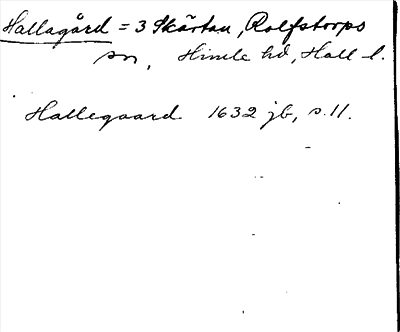 Hallagård = 3 Skårtan, Rolfstorps
sn, Himle hd, Hall l.
Hallegaard 1632 jb, s. 11.